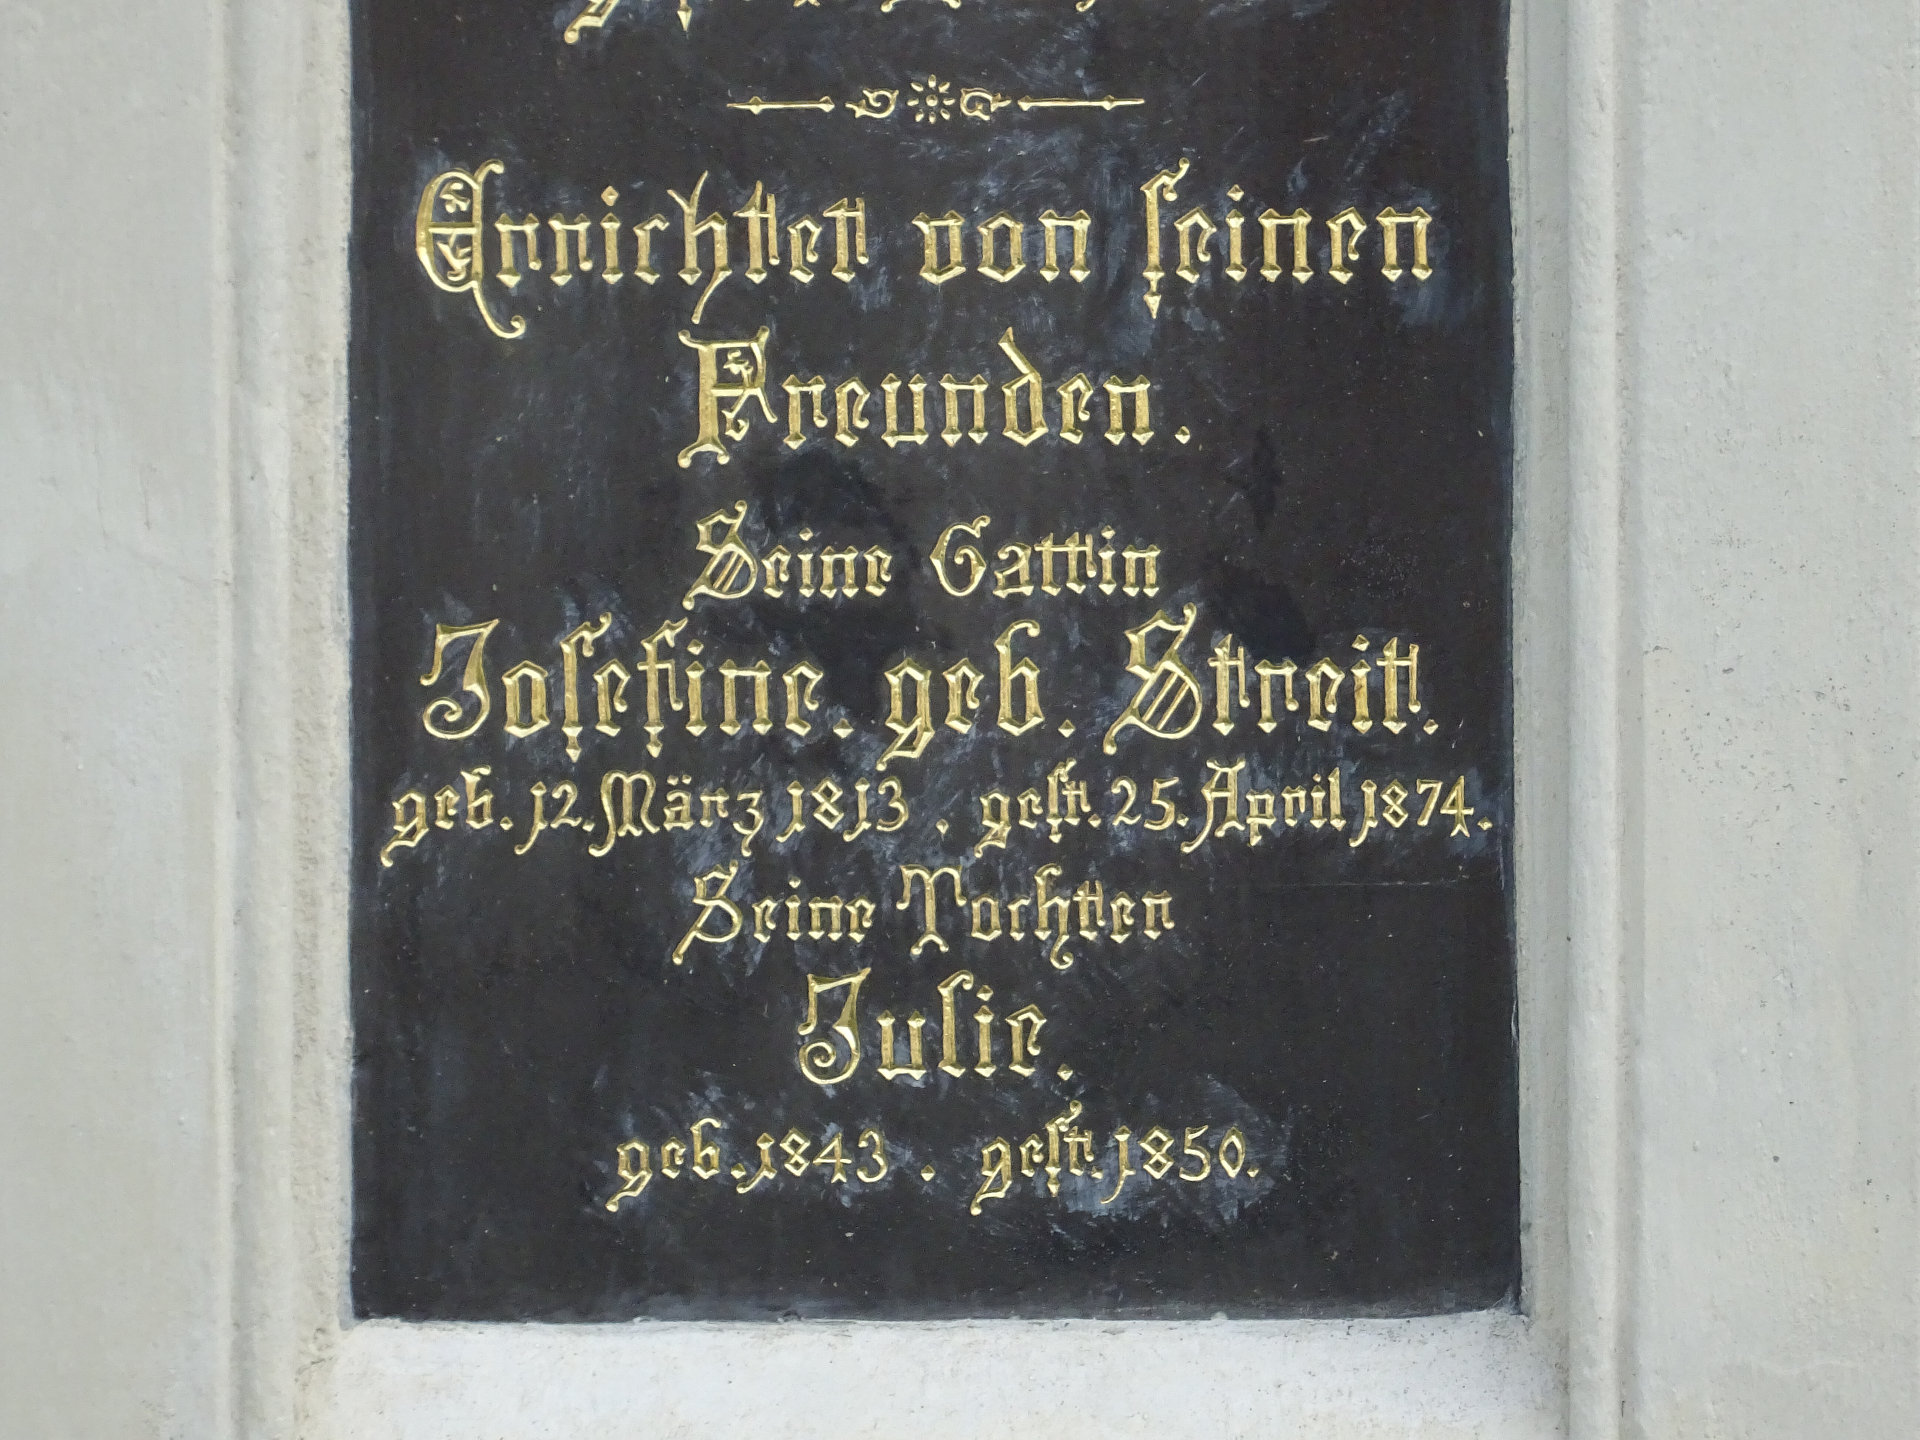 Errichtet von seinen
Freunden.
Seine Gattin
Josefine. geb. Streit.
geb. 12. März 1813 . gest. 25. April 1874.
Seine Tochter
Julie.
geb. 1843 . gest. 1850.